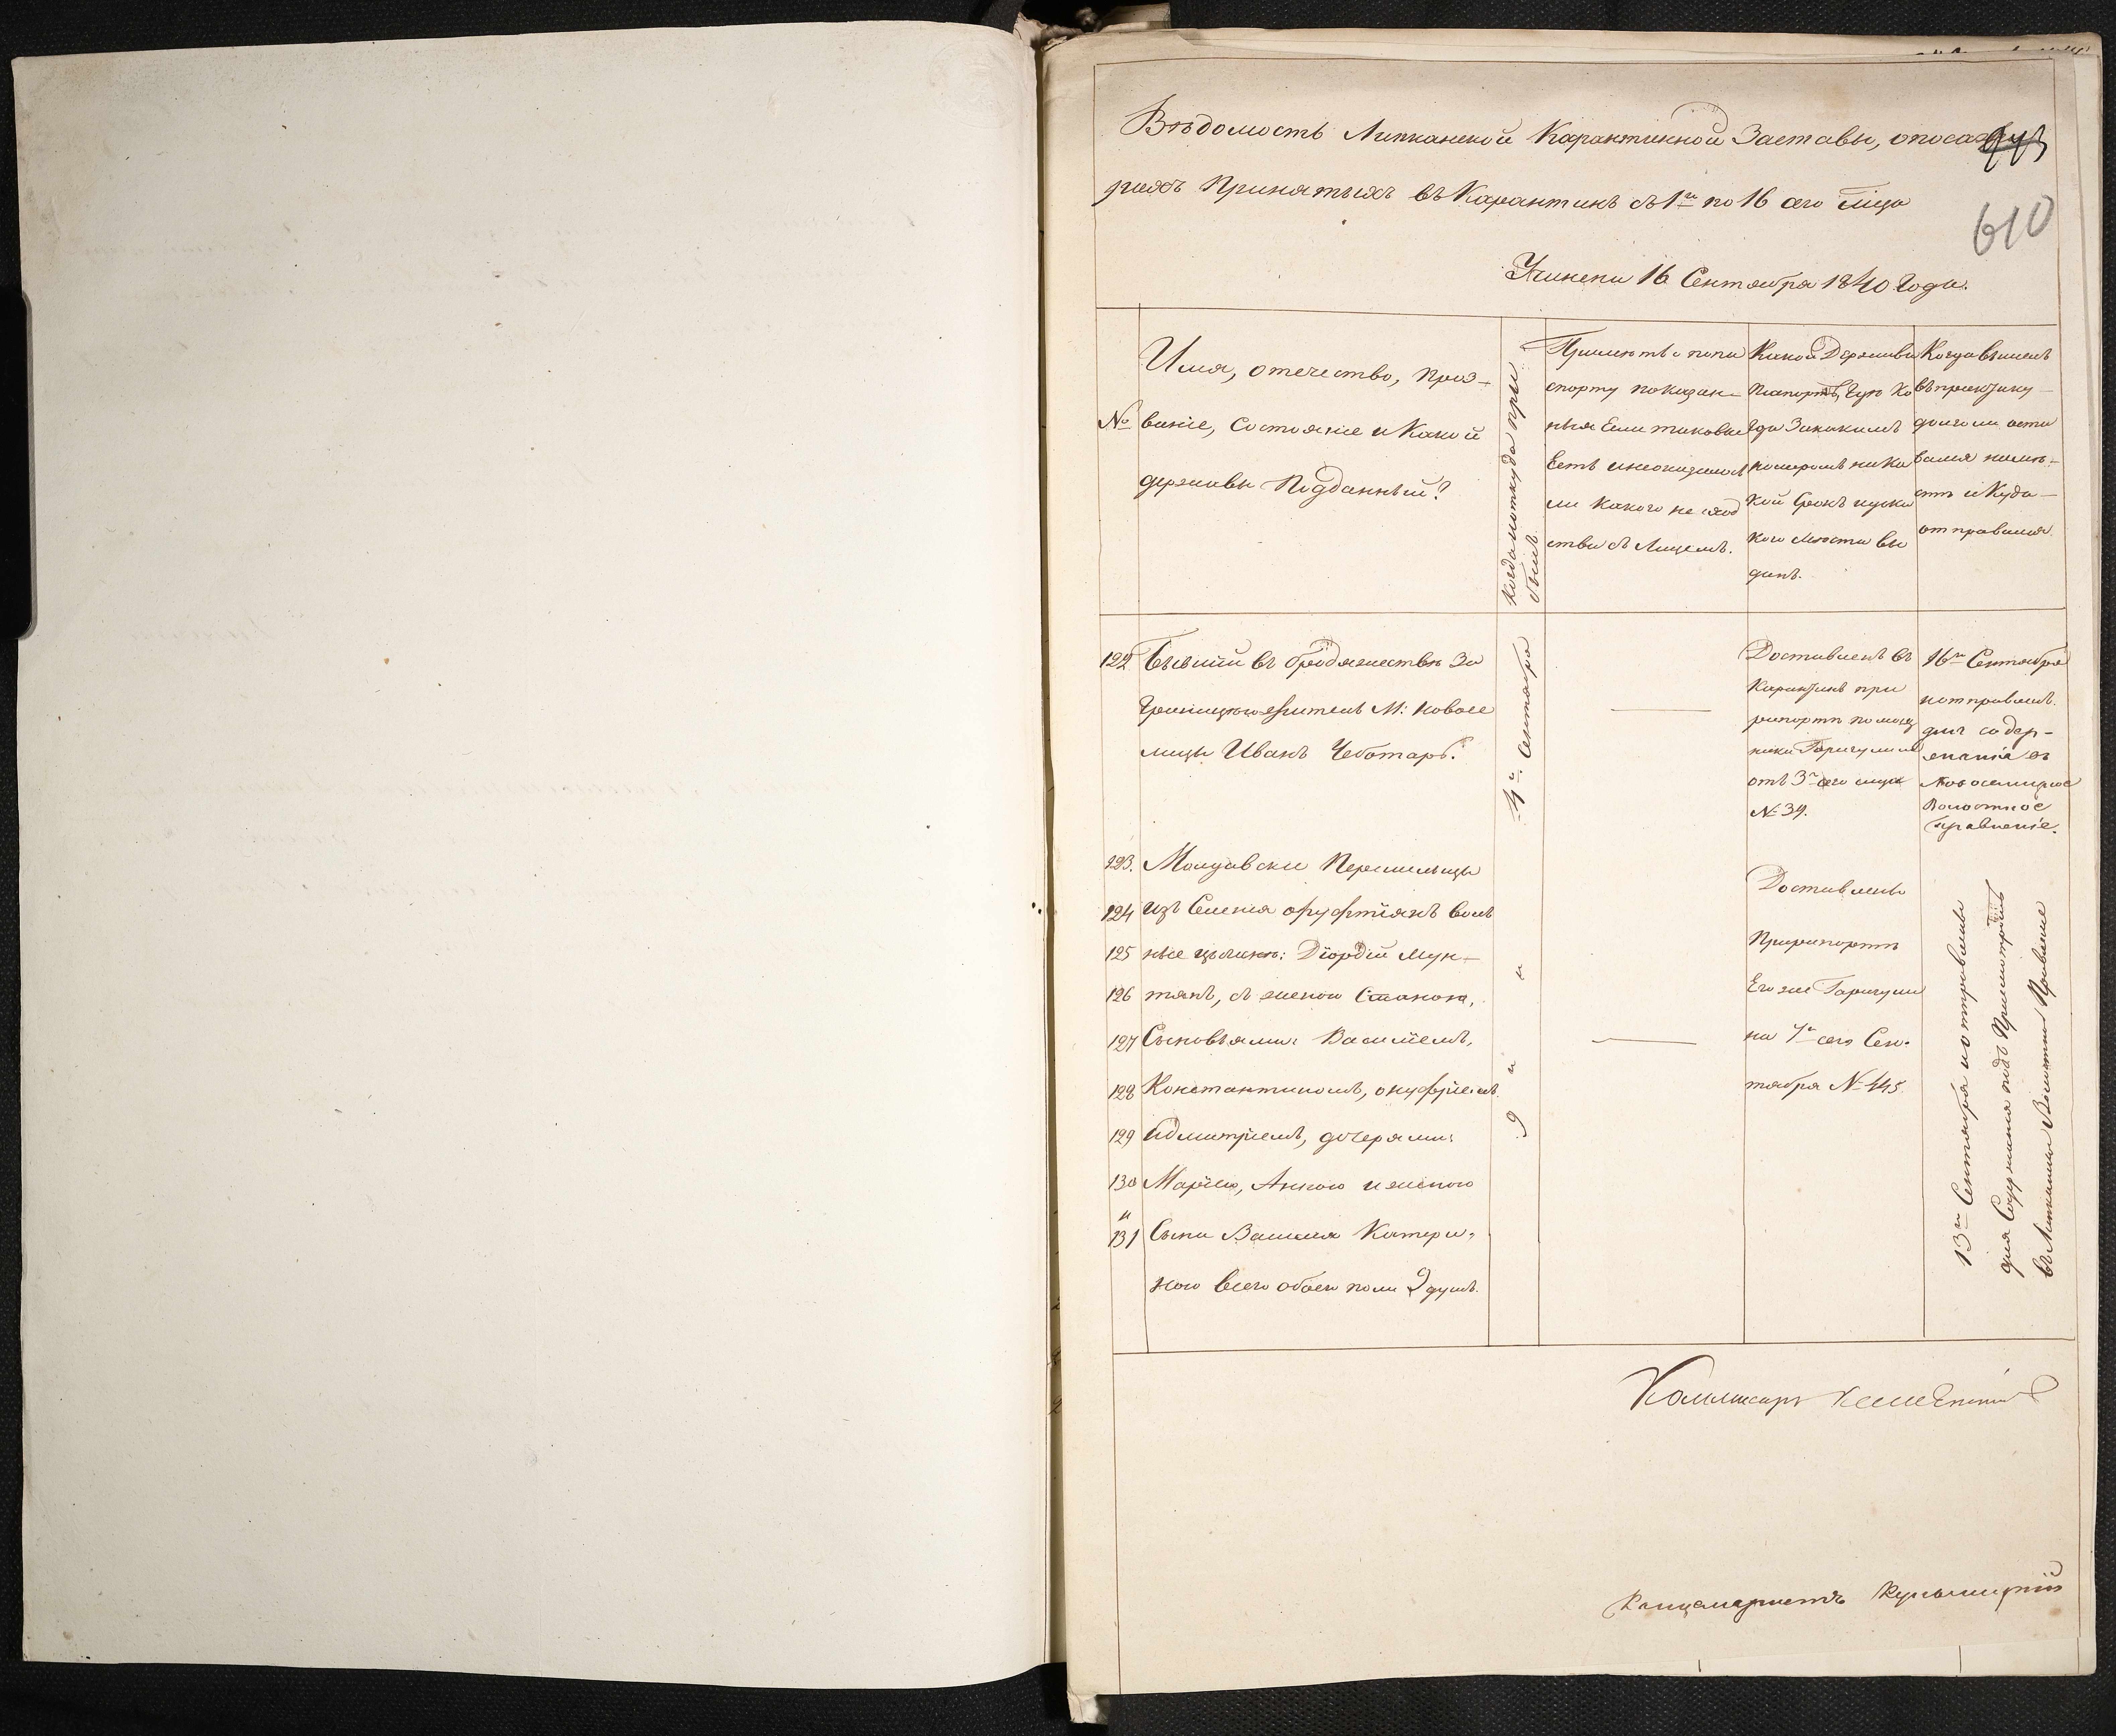 Вѣдомость Липканской Карантинной Заставы, о паса
рахъ принятыхъ въ Карантинъ съ 1го по 16 сего м͠ца
610
Учинена 16 Сентября 1840 Года.
№
Имя, отечество, проз-
ваніе, состояніе и какой
державы Подданный?
Когда и откуда при
былъ
Примѣты по па
спорту показан-
ныя Если таковые
Есть и неоказалось
ли какого не сход
ства съ Лицемъ.
Какой Державы
Когда За какимъ
номеромъ на ка
кой Срокъ
кого Мѣста вы
данъ.
Когда вышелъ
въ практику
долго ли оста
вался на мѣ-
стѣ и Куда
отправился
122
Бывшій въ бродяжествѣ За
границею житель М: Новосе
лицы Иванъ Чеботарь.
4го Сентября
Доставленъ въ
Карантинъ при
рапортѣ помощ
ника
отъ 3го сего м͠ца
№ 34.
16го Сентября
и отправленъ
для содер-
жанія въ
Новоселицкое
Волостное
Правленіе.
123. Молдавски Переселенцы
124 изъ Селенія воль
125 ные цыгане: Діордій Мун-
126 тянъ, съ женою Станою,
127 Сыновьями: Василіемъ,
128 Константиномъ, Онуфріемъ
129 Идмитріемъ, дочерями:
130 Маріею, Анною и женою
и
131 Сына Василія Катери-
ною всего обоего пола 9 душъ.
9 " "
Доставлены
При рапортѣ
Его же
на 7го сего Сен-
тября № 445
13го Сентября и отправлены
для Содержанія подъ Присмотромъ
въ Липканы Волостное Правленіе
Коммисаръ
Канцеляристъ